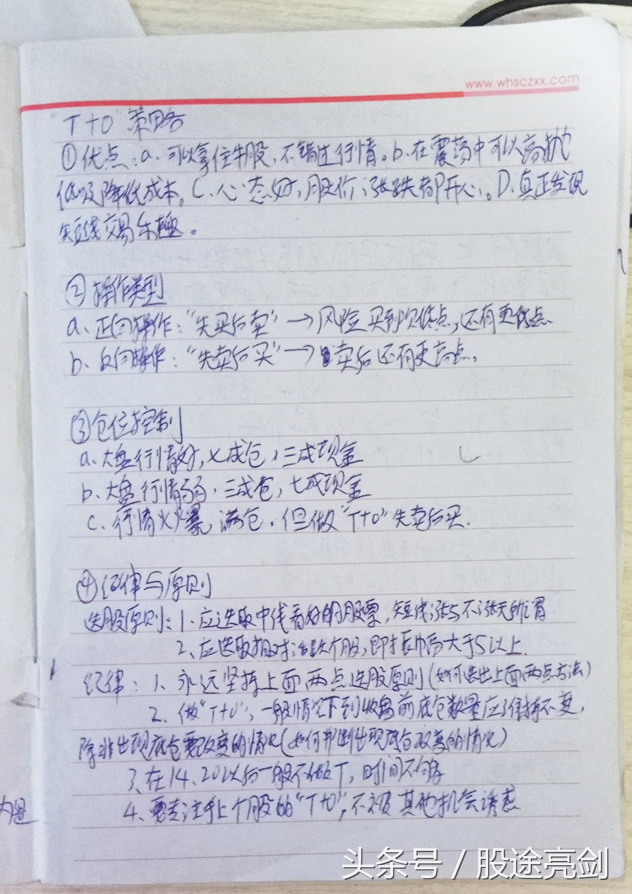 www.whsczxx.com
"T+0"策略
①优点:a、可以拿住牛股,不错过行情。b、在震荡中可以高抛
低吸降低成本。C、心态好,股价涨跌都开心。D、真正发现
短线交易乐趣。
②操作类型
a、正向操作:"先买后卖"→风险买到次低点,还有更低点
b、反向操作:"先卖后买"→卖后还有更高点。
③仓位控制
a、大盘行情好,七成仓,三成现金
b、大盘行情弱,三成仓,七成现金
c、行情火爆,满仓。但做"T+0"先卖后买.
④纪律与原则
选股原则:1、应选取中线看好的股票,短线涨与不涨无所谓
2、应选取相对活跃个股,即振幅大于5以上.
纪律:1、永远坚持上面两点选股原则(如何选出上面两点方法)
2、做"T+0",一般情况下到收盘前底仓数量应保持不变,
除非出现底仓要改变的情况(如何判断出现底仓改变的情况)
3、在14.20以后一般不做T,时间不够
4、要专注手上个股的"T+0",不被其他机会诱惑
头条号 / 股途亮剑